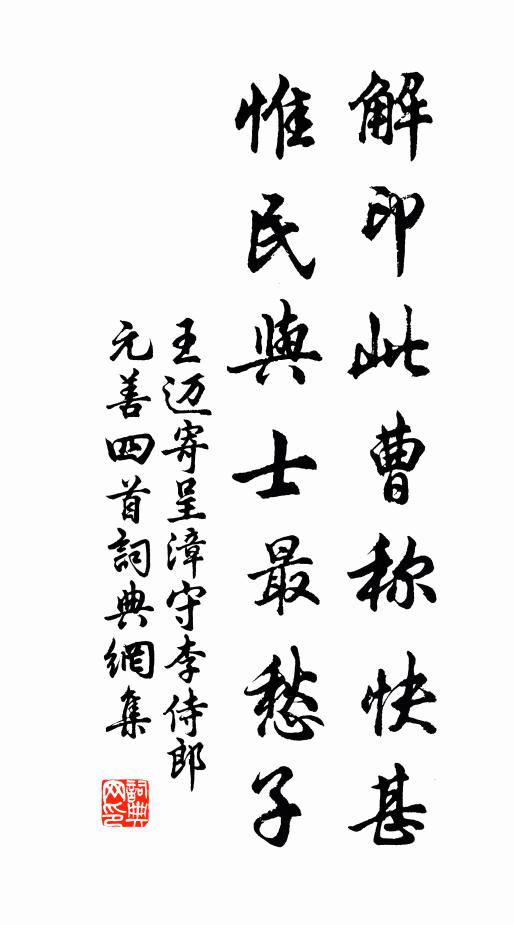 解印此曹称快甚
惟民與士最愁子
王迈寄呈漳守李侍郎
元善四首詞典網集
詞典
网印